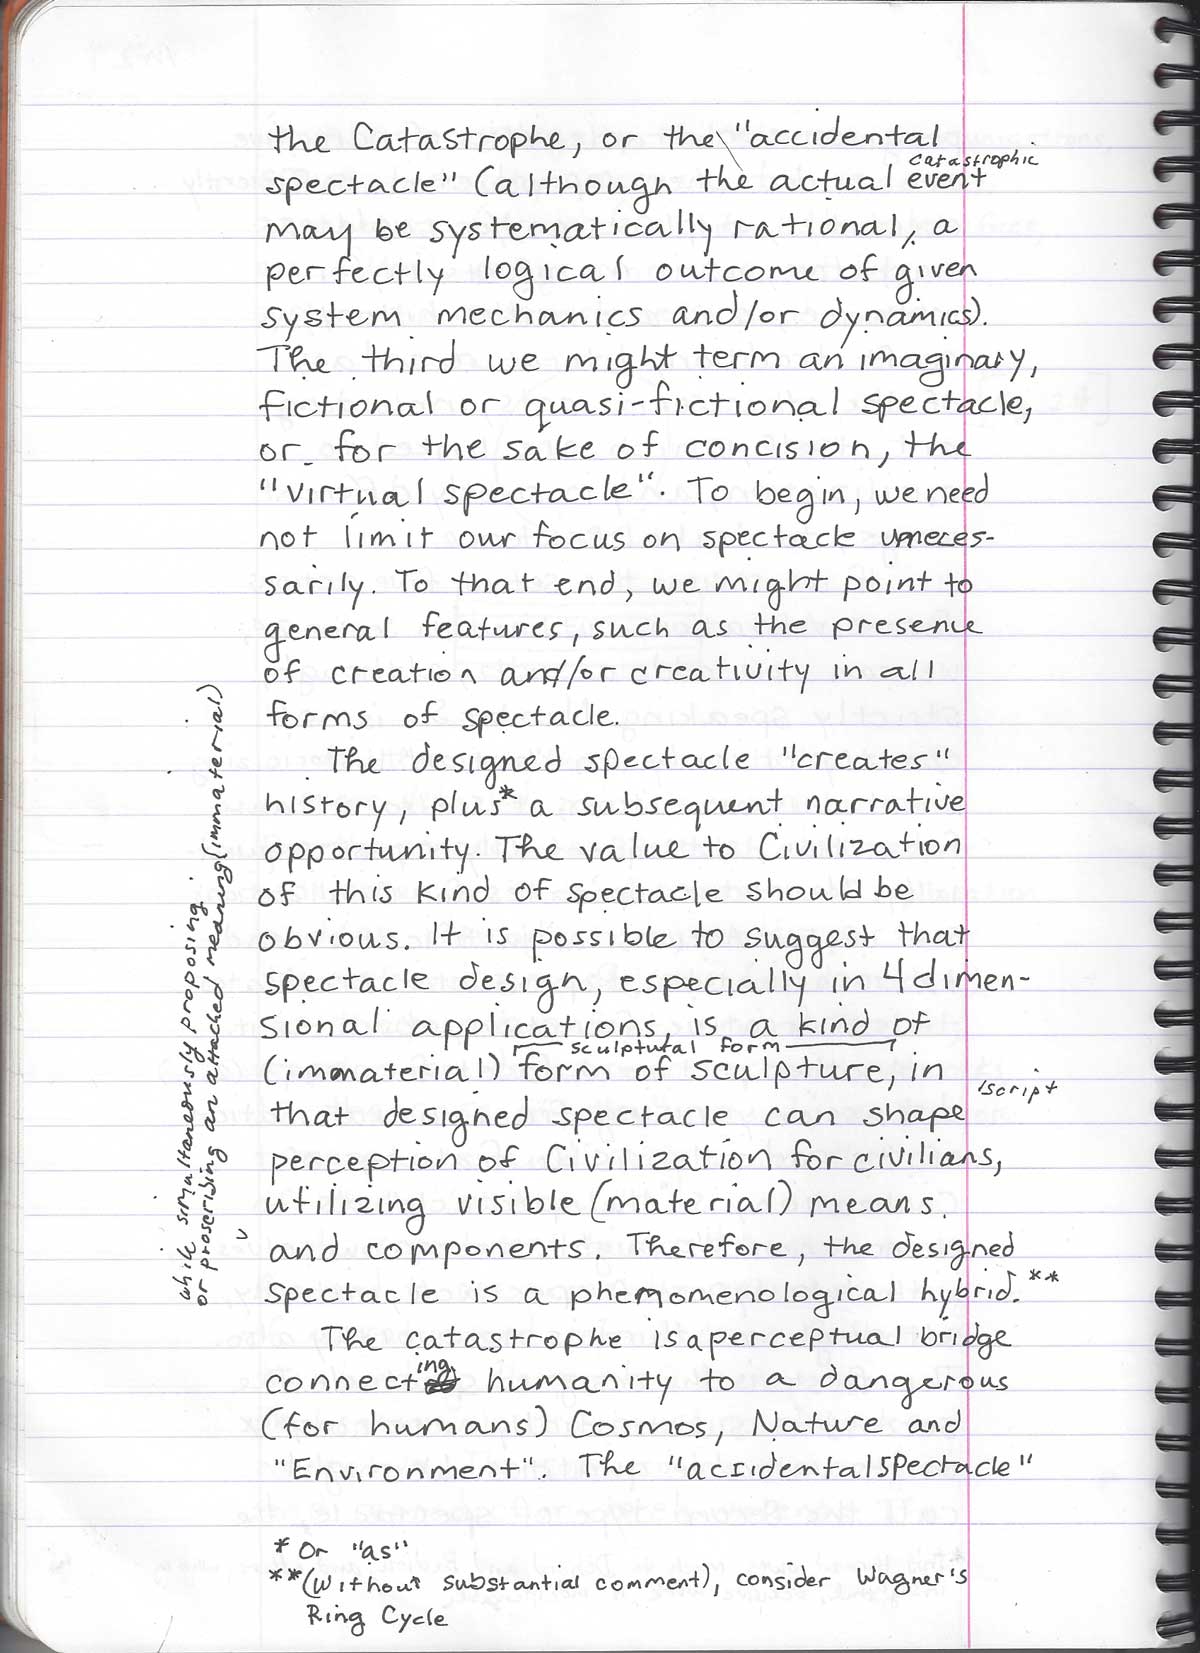 the Catastrophe, or the "accidental
catastrophic
spectacle" (although the actual event
may be systematically rational, a
perfectly logical outcome of given
system mechanics and/or dynamics).
The third we might term an imaginary,
fictional or quasi-fictional spectacle,
or for the sake of concision, the
"virtual spectacle". To begin, we need
not limit our focus on spectacle unneces-
sarily. To that end, we might point to
general features, such as the presence
of creation and/or creativity in all
forms of spectacle.
The designed spectacle "creates"
history, plus* a subsequent narrative
opportunity. The value to Civilization
of this kind of spectacle should be
obvious. It is possible to suggest that
spectacle design, especially in 4 dimen-
sional applications, is a kind of
sculptural form
(immaterial) form of sculpture, in
script
that designed spectacle can shape
perception of Civilization for civilians,
utilizing visible (material) means
and components. Therefore, the designed
spectacle is a phenomenological hybrid.**
while simultaneously proposing
or proscribing an attached meaning (immaterial)
The catastrophe is a perceptual bridge
connecting humanity to a dangerous
(for humans) Cosmos, Nature and
"Environment". The "accidental spectacle"
* Or "as"
**(without substantial comment), consider Wagner's
Ring Cycle